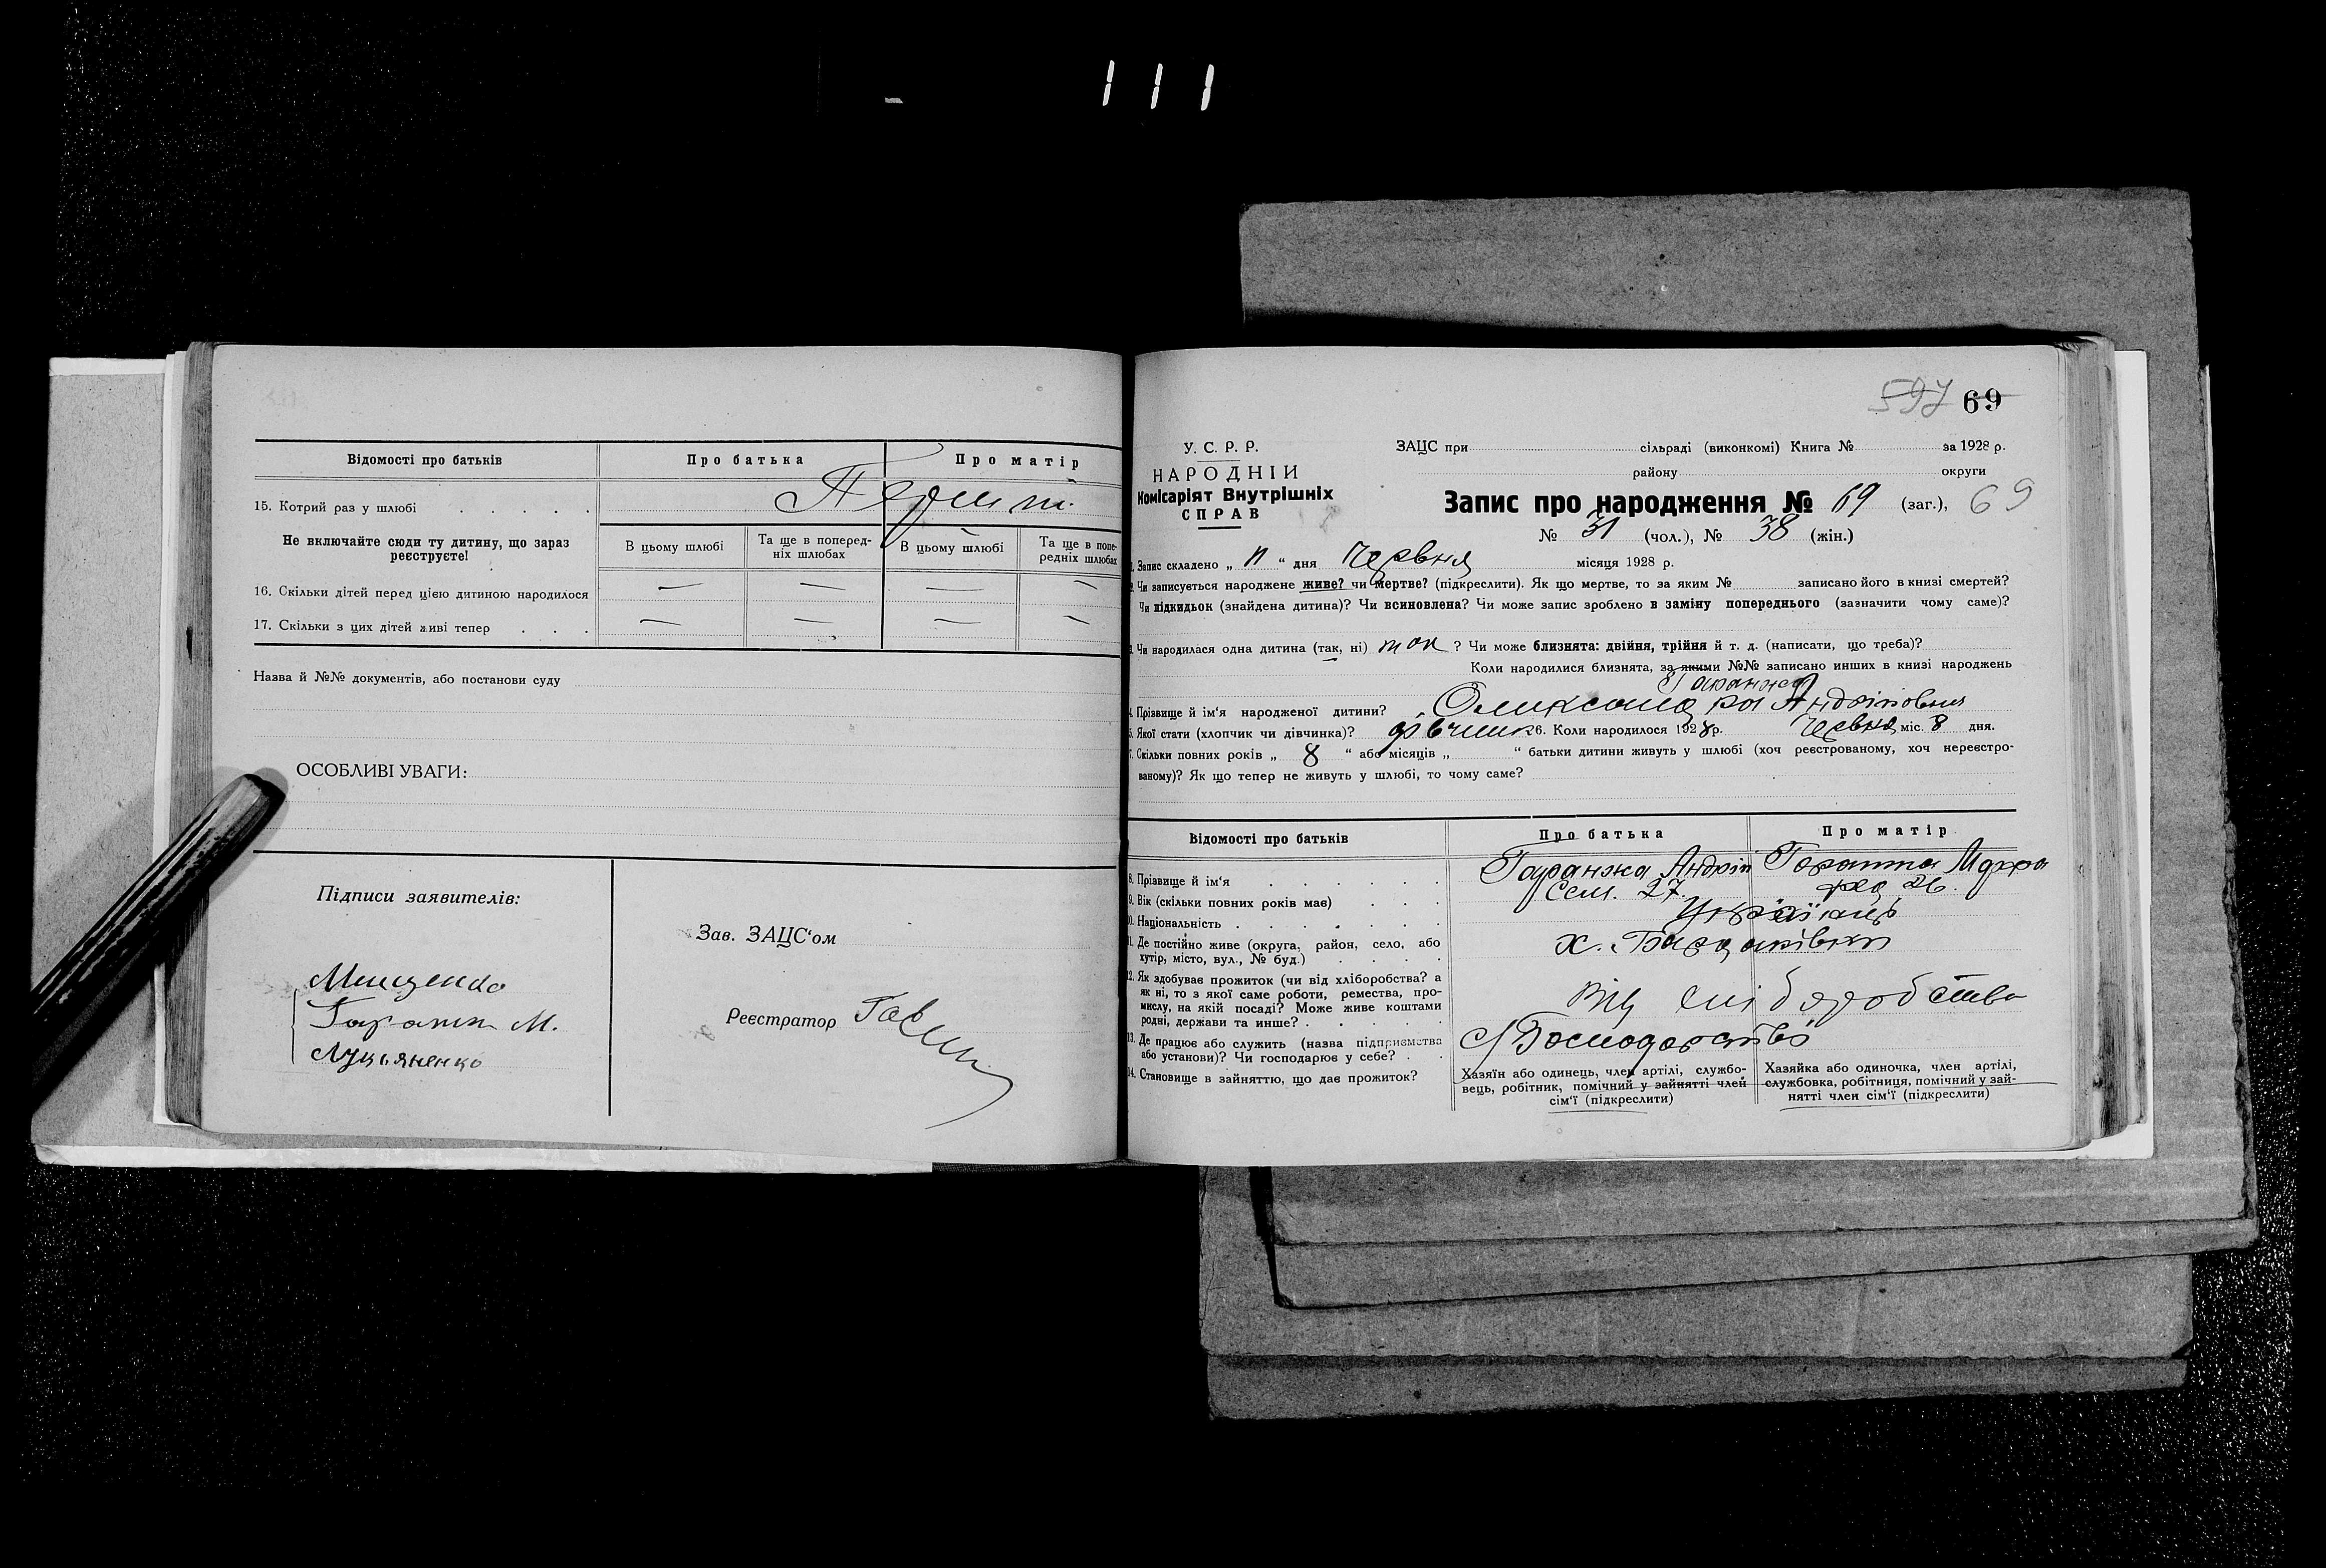 111
Відомості про батьків
Про батька
Про матір
15. Котрий раз у шлюбі
Перший
Не включайте сюди ту дитину, що зараз реєструєте!
В цьому шлюбі
Та ще в попередніх шлюбах
В цьому шлюбі
Та ще в попередніх шлюбах
16. Скільки дітей перед цією дитиною народилося — — — —
17. Скільки з цих дітей живі тепер — — — —
Назва й №№ документів, або постанови суду
ОСОБЛИВІ УВАГИ:
Підписи заявителів:
Мищенко
Гаранж М.
Лукьяненко
Зав. ЗАЦС'ом
Реєстратор
597 69
У. С. Р. Р.
НАРОДНІЙ
Комісаріят Внутрішніх
СПРАВ
ЗАЦС при сільраді (виконкомі) Книга № за 1928 р.
району округи
Запис про народження № 69 (заг.), 69
№ 31 (чол.), № 38 (жін.)
1. Запис складено „ 11 “ дня Червня місяця 1928 р.
2. Чи записується народжене живе? чи мертве? (підкреслити). Як що мертве, то за яким № записано його в книзі смертей?
Чи підкидьок (знайдена дитина)? Чи всиновлена? Чи може запис зроблено в заміну попереднього (зазначити чому саме)?
3. Чи народилася одна дитина (так, ні) так ? Чи може близнята: двійня, трійня й т. д. (написати, що треба)?
Коли народилися близнята, за якими №№ записано инших в книзі народжень
Гаранжа
4. Прізвище й ім'я народженої дитини? Олександра Андріївна
5. Якої стати (хлопчик чи дівчинка)? дівчинк 6. Коли народилося 1928 р. Червня міс. 8 дня.
7. Скільки повних років „ 8 “ або місяців „ “ батьки дитини живуть у шлюбі (хоч реєстрованому, хоч нереєстрованому)? Як що тепер не живуть у шлюбі, то чому саме?
Відомості про батьків
Про батька
Про матір
8. Прізвище й ім'я
Гаранжа Андрій
Гаранжа Мотря
9. Вік (скільки повних років має)
27
26
10. Національність
Українці
11. Де постійно живе (округа, район, село, або хутір, місто, вул., № буд.)
х.
12. Як здобуває прожиток (чи від хліборобства? а як ні, то з якої саме роботи, ремества, промислу, на якій посаді? Може живе коштами родні, держави та инше?
Від хліборобства
13. Де працює або служить (назва підприємства або установи)? Чи господарює у себе?
Господарстві
14. Становище в зайняттю, що дає прожиток?
Хазяїн або одинець, член артілі, службовець, робітник, помічний у зайнятті член сім'ї (підкреслити)
Хазяйка або одиночка, член артілі, службовка, робітниця, помічний у зайнятті член сім'ї (підкреслити)